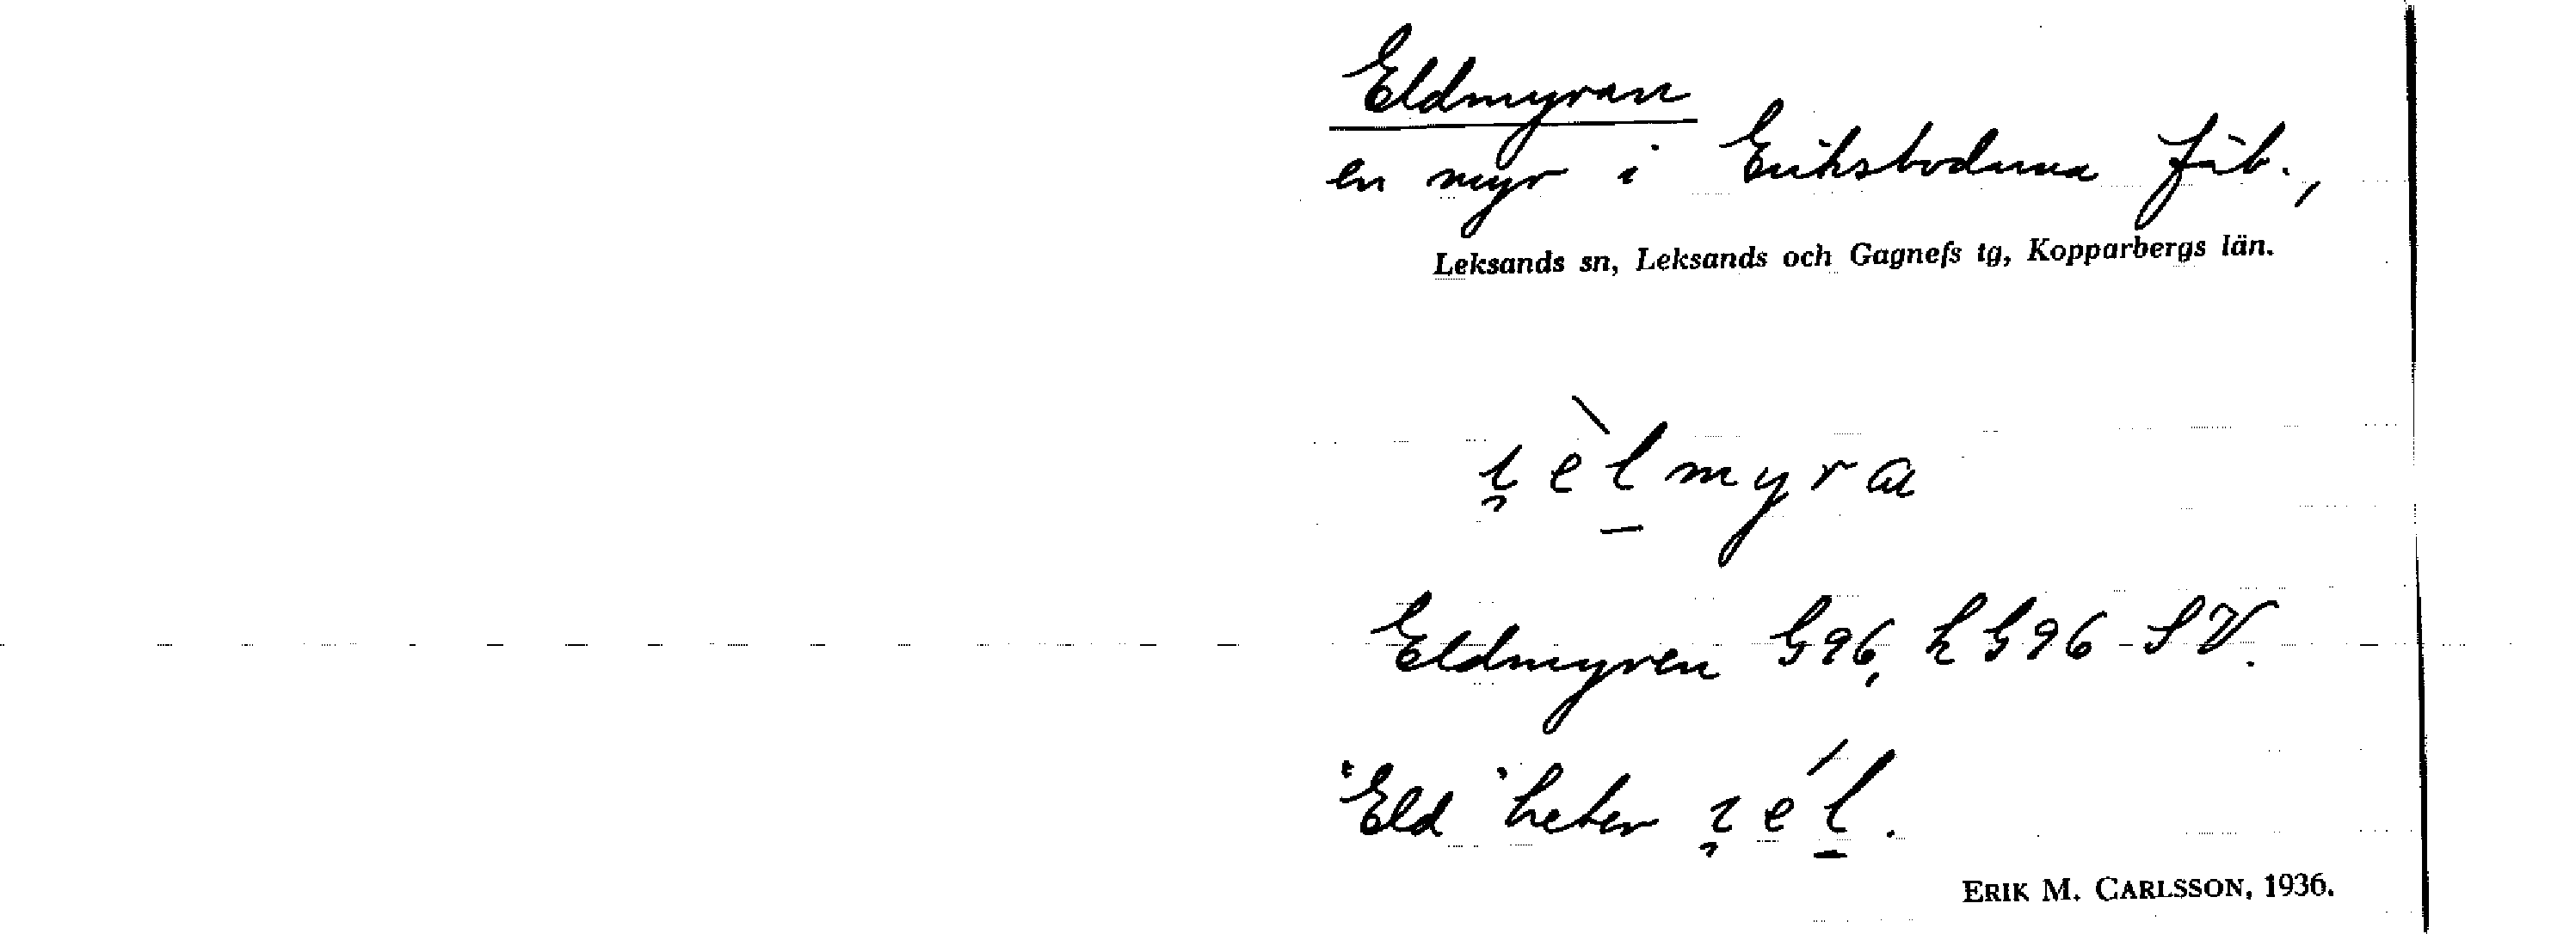 Eldmyran
en myr i Eriksbodarna fäb.,
Leksands sn, Leksands och Gagnefs tg, Kopparbergs län.
ı̯èl̲myra
Eldmyren G96, h G96 SV.
"Eld" heter ı̯él̲.
ERIK M. CARLSSON, 1936.